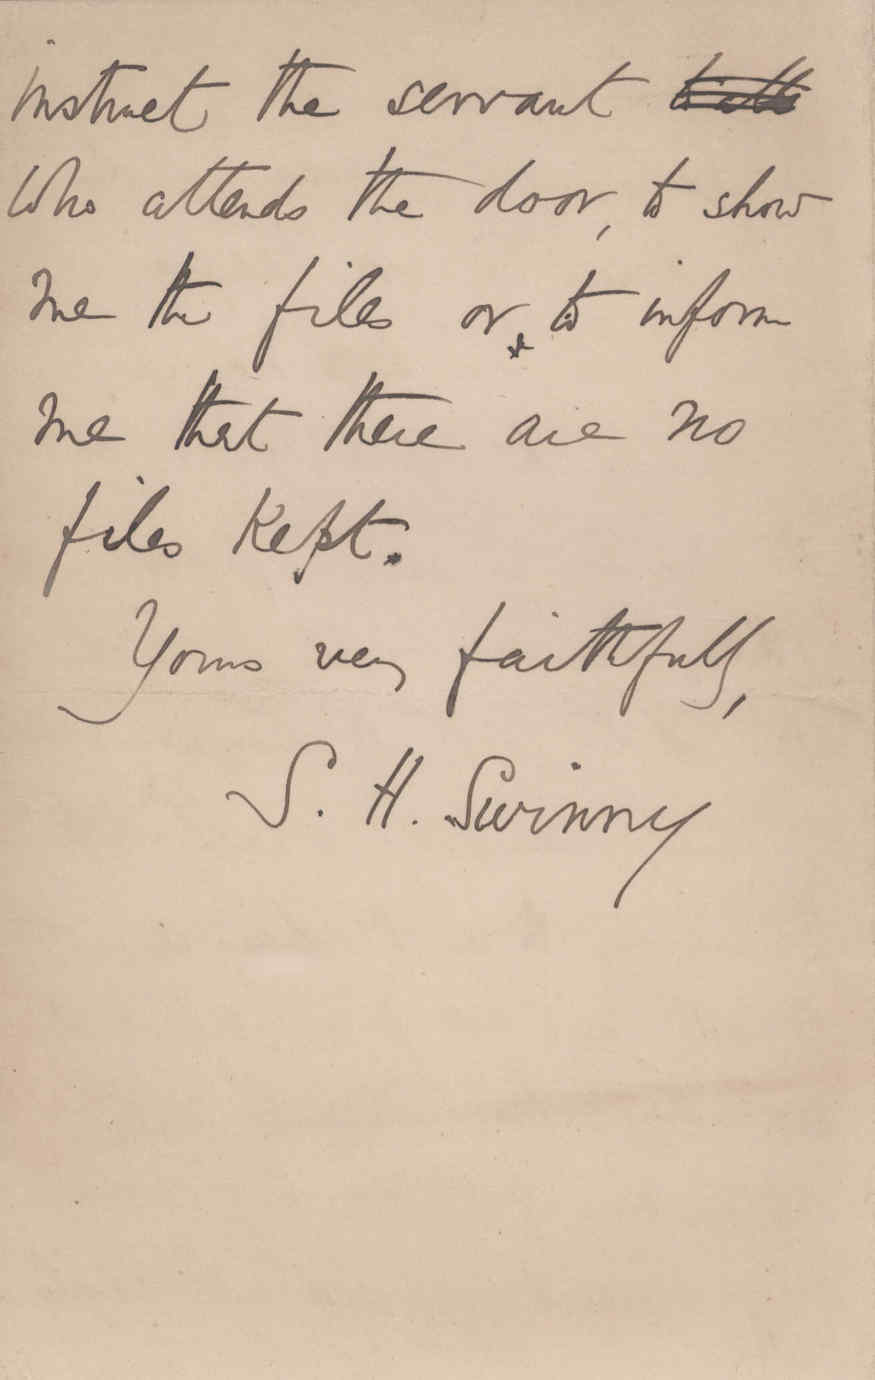 instruct the servant
who attends the door, to show
me the files or, to inform
me that there are no
files kept.
Yours very faithfully,
S. H. Swinny